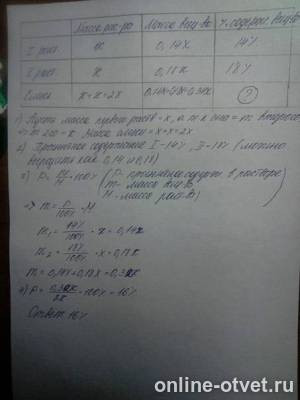 Масса рас-ра Масса вещ-ва % содерж. вещ-ва
I раст. x 0,14x 14%
II раст. x 0,18x 18%
Смесь x+x=2x 0,14x+0,18x=0,32x ?
1) Пусть масса первого раствора = x, а масса второго
= x. Масса смеси = x+x=2x
2) Процентное содержание I-14%, II-18% (можно
выразить как 0,14 и 0,18)
3) P = m/M · 100% (P - процентное содерж. в растворе
m - масса вещ-ва
M - масса раст-ва)
=> m = P/100% · M
m₁ = 14%/100% · x = 0,14x
m₂ = 18%/100% · x = 0,18x
m = 0,14x+0,18x = 0,32x
4) P = 0,32x/2x · 100% = 16%
Ответ: 16%
online-otvet.ru